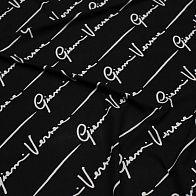 Gianni Versace
Gianni Versace
Gianni Versace
Gianni Versace
Gianni Versace
Gianni Versace